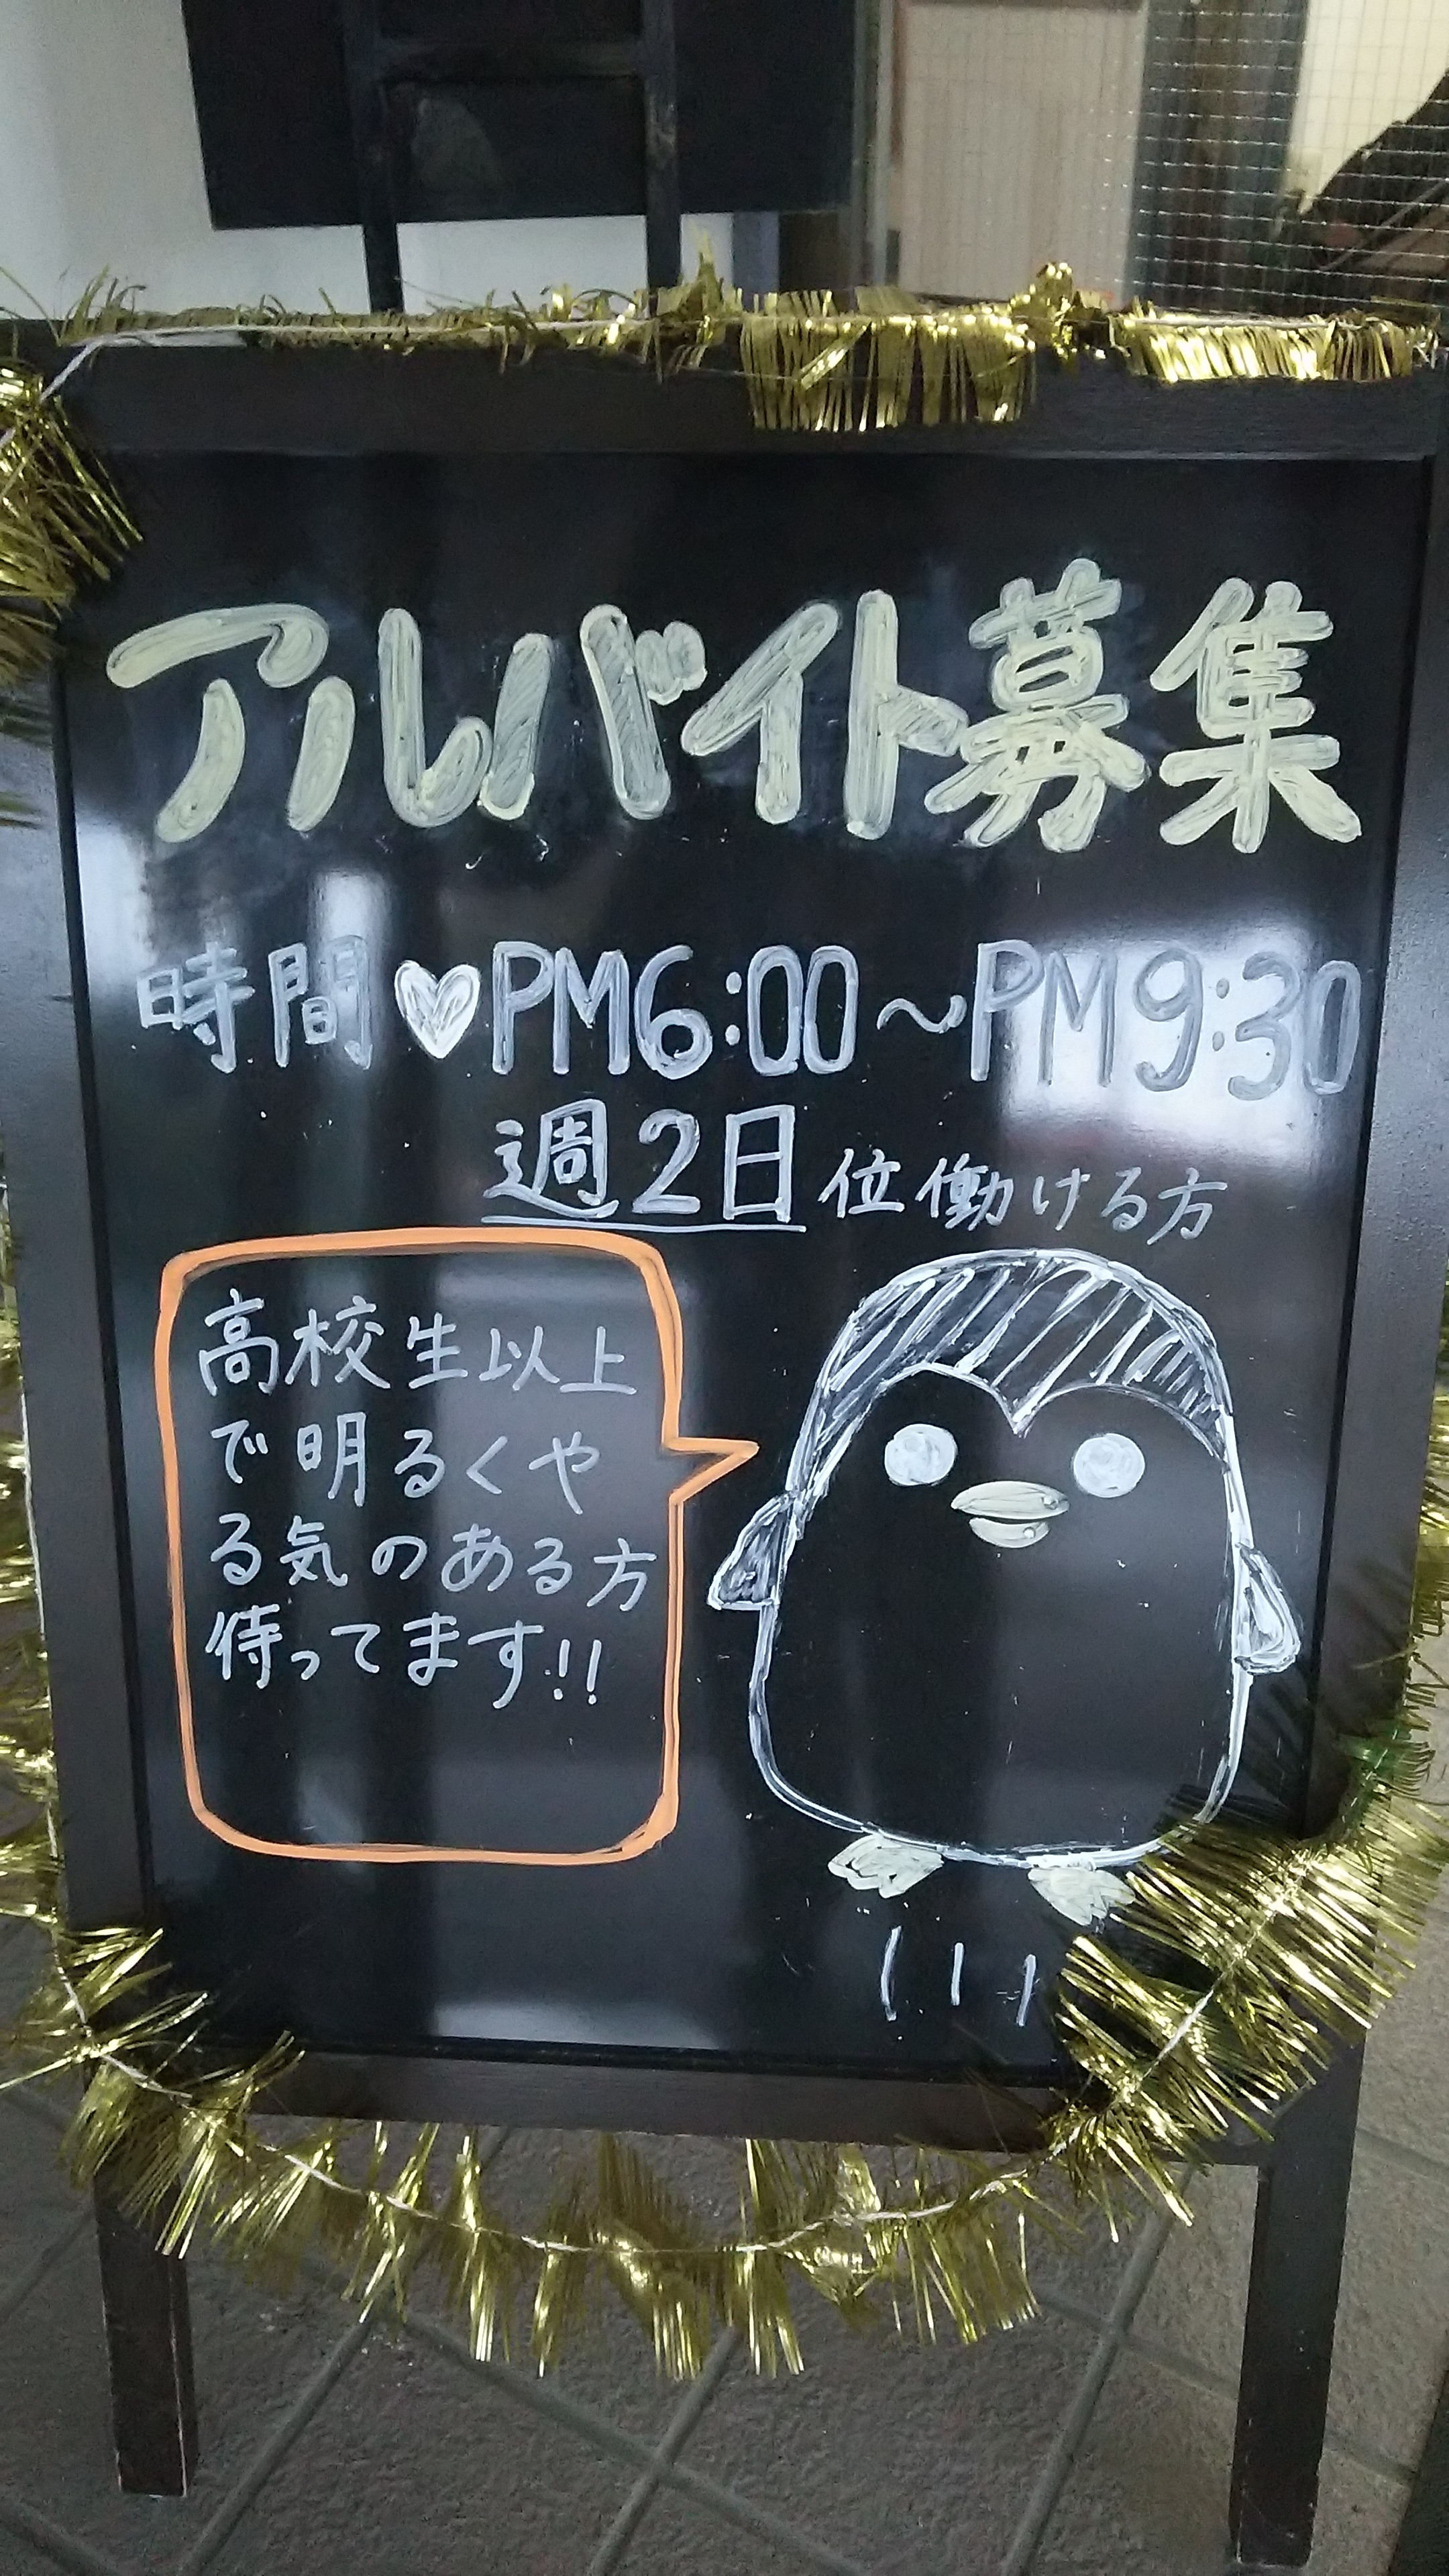 アルバイト募集
時間♥PM6:00〜PM9:30
週2日位働ける方
高校生以上
で明るくや
る気のある方
待ってます!!